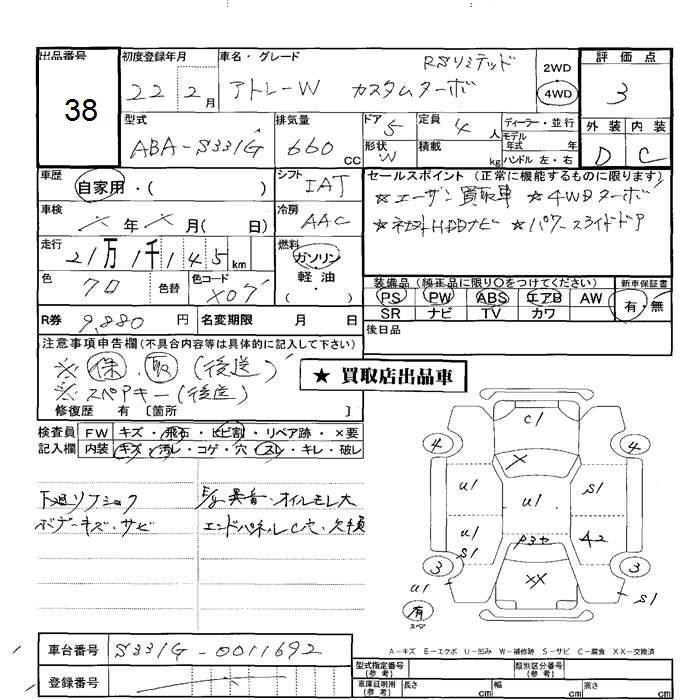 出品番号
38
初度登録年月
22 2月
車名・グレード
アトレーW カスタムターボ RSリミテッド
2WD
4WD
評価点
3
外装 内装
D C
型式
ABA-S331G
排気量
660 cc
ドア 5
定員 4 人
形状 W
積載 kg
ディーラー・並行
モデル年式 年
ハンドル 左・右
車歴
自家用・( )
シフト
IAT
車検
×年×月( 日)
冷房
AAC
走行
21万1千145km
燃料
ガソリン
軽油
( ・ )
色
クロ
色替
色コード
X07
R券 9,880 円
名変期限 月 日
セールスポイント (正常に機能するものに限ります)
☆エーゼン買取車 ☆4WDターボ
☆社外HDDナビ ☆パワースライドドア
装備品 (純正品に限り○をつけてください)
PS PW ABS エアB AW
SR ナビ TV カワ
新車保証書
有・無
後日品
注意事項申告欄(不具合内容等は具体的に記入して下さい)
※保・取(後送)
※スペアキー(後送)
修復歴 有 〔箇所 〕
★ 買取店出品車
検査員記入欄
FW キズ・飛石・ヒビ割・リペア跡・×要
内装 キズ・汚レ・コゲ・穴・スレ・キレ・破レ
下廻リ
ボデーキズ・サビ
E/g異音・オイルモレ大
エンドパネルC穴・欠損
C1
X
4
4
U1
S1
U1
U1
S1
A2
XX
3
3
U1
S1
有
スペア
A-キズ E-エクボ U-凹み W-補修跡 S-サビ C-腐食 XX-交換済
車台番号
S331G-0011692
登録番号
型式指定番号(参考)
類別区分番号(参考)
車庫証明用(参考)
長さ cm 幅 cm 高さ cm